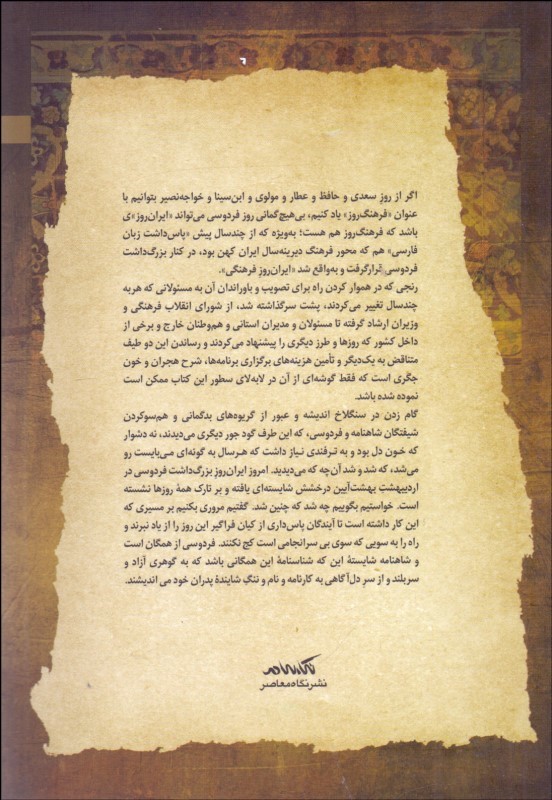 اگر از روز سعدی و حافظ و عطار و مولوی و ابن‌سینا و خواجه‌نصیر بتوانیم با
عنوان «فرهنگ‌روز» یاد کنیم، بی‌هیچ‌گمانی روز فردوسی می‌تواند «ایران‌روز»ی
باشد که فرهنگ‌روز هم هست؛ به‌ویژه که از چندسال پیش «پاس‌داشت زبان
فارسی» هم که محور فرهنگ دیرینه‌سال ایران کهن بود، در کنار بزرگ‌داشت
فردوسی قرارگرفت و به‌واقع شد «ایران‌روزِ فرهنگی».
رنجی که در هموار کردن راه برای تصویب و باوراندن آن به مسئولانی که هر به
چندسال تغییر می‌کردند، پشت سرگذاشته شد، از شورای انقلاب فرهنگی و
وزیران ارشاد گرفته تا مسئولان و مدیران استانی و هم‌وطنان خارج و برخی از
داخل کشور که روزها و طرز دیگری را پیشنهاد می‌کردند و رساندن این دو طیف
متناقض به یک‌دیگر و تأمین هزینه‌های برگزاری برنامه‌ها، شرح هجران و خون
جگری است که فقط گوشه‌ای از آن در لابه‌لای سطور این کتاب ممکن است
نموده شده باشد.
گام زدن در سنگلاخ اندیشه و عبور از گریوه‌های بدگمانی و هم‌سوکردن
شیفتگان شاهنامه و فردوسی، که این طرف گود جور دیگری می‌دیدند، نه دشوار
که خون دل بود و به ترفندی نیاز داشت که هرسال به گونه‌ای می‌بایست رو
می‌شد، که شد و شد آن‌چه که می‌دیدید. امروز ایران‌روزِ بزرگ‌داشت فردوسی در
اردیبهشتِ بهشت‌آیین درخشش شایسته‌ای یافته و بر تارک همهٔ روزها نشسته
است. خواستیم بگوییم چه شد که چنین شد. گفتیم مروری بکنیم بر مسیری که
این کار داشته است تا آیندگان پاس‌داری از کیان فراگیر این روز را از یاد نبرند و
راه را به سویی که سوی بی سرانجامی است کج نکنند. فردوسی از همگان است
و شاهنامه شایستهٔ این که شناسنامهٔ این همگانی باشد که به گوهری آزاد و
سربلند و از سرِ دل‌آگاهی به کارنامه و نام و ننگِ شایندهٔ پدران خود می اندیشند.
نشر نگاه معاصر